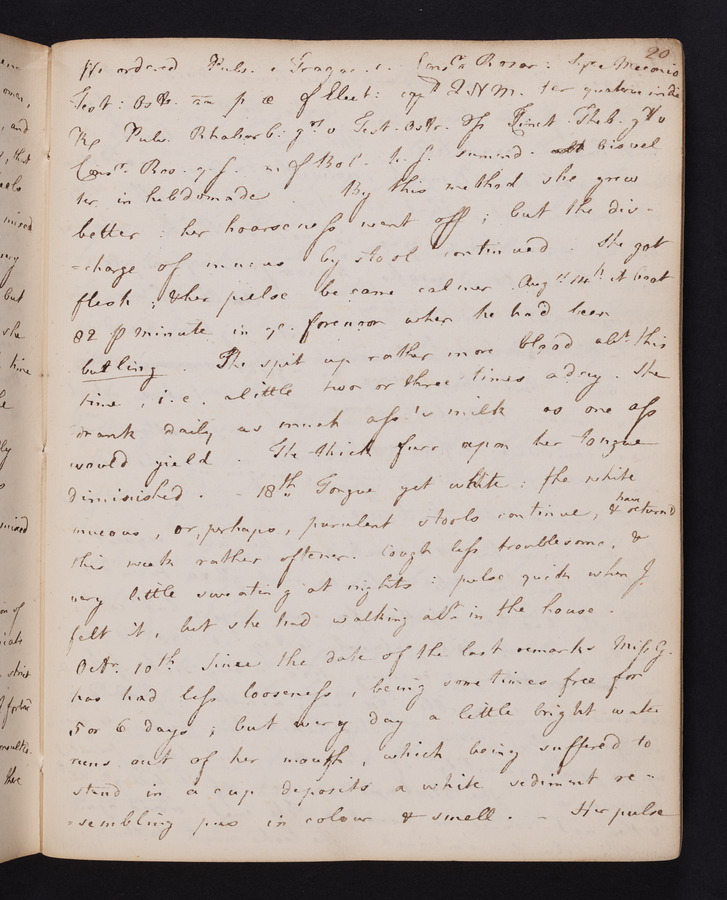 20
We ordered Pulv. e Tragac. c. Consr. Rosar: Syr e Meconio
Test: Ostr. āā p æ f Elect: cpt Z N M. ter quaterve in die
Rp Pulv. Rhabarb: gr v Test. Ostr. ʒss Tinct. Theb. gtt v
Consr. Ros. q. s. m f Bol. h. s. sumend. bis vel
ter in hebdomade. By this method she grew
better: her hoarseness went off; but the dis-
-charge of mucus by stool continued. She got
flesh; & her pulse became calmer. Augst 14th it beat
82 p minute in ye. forenoon when she had been
bustling. She spit up rather more blood abt this
time, i.e. a little two or three times a day. She
drank daily as much ass's milk as one ass
would yield. The thick furr upon her tongue
diminished. - 18th Tongue yet white: the white
mucous, or, perhaps, purulent stools continue, & have return'd
this week rather oftener. Cough less troublesome, &
very little sweating at nights: pulse quick when I
felt it, but she had walking abt in the house.
Octr. 10th Since the date of the last remarks Miss G.
has had less looseness, being sometimes free for
5 or 6 days; but every day a little bright water
runs out of her mouth, which being suffered to
stand in a cup deposits a white sediment re-
-sembling pus in colour & smell. - Her pulse